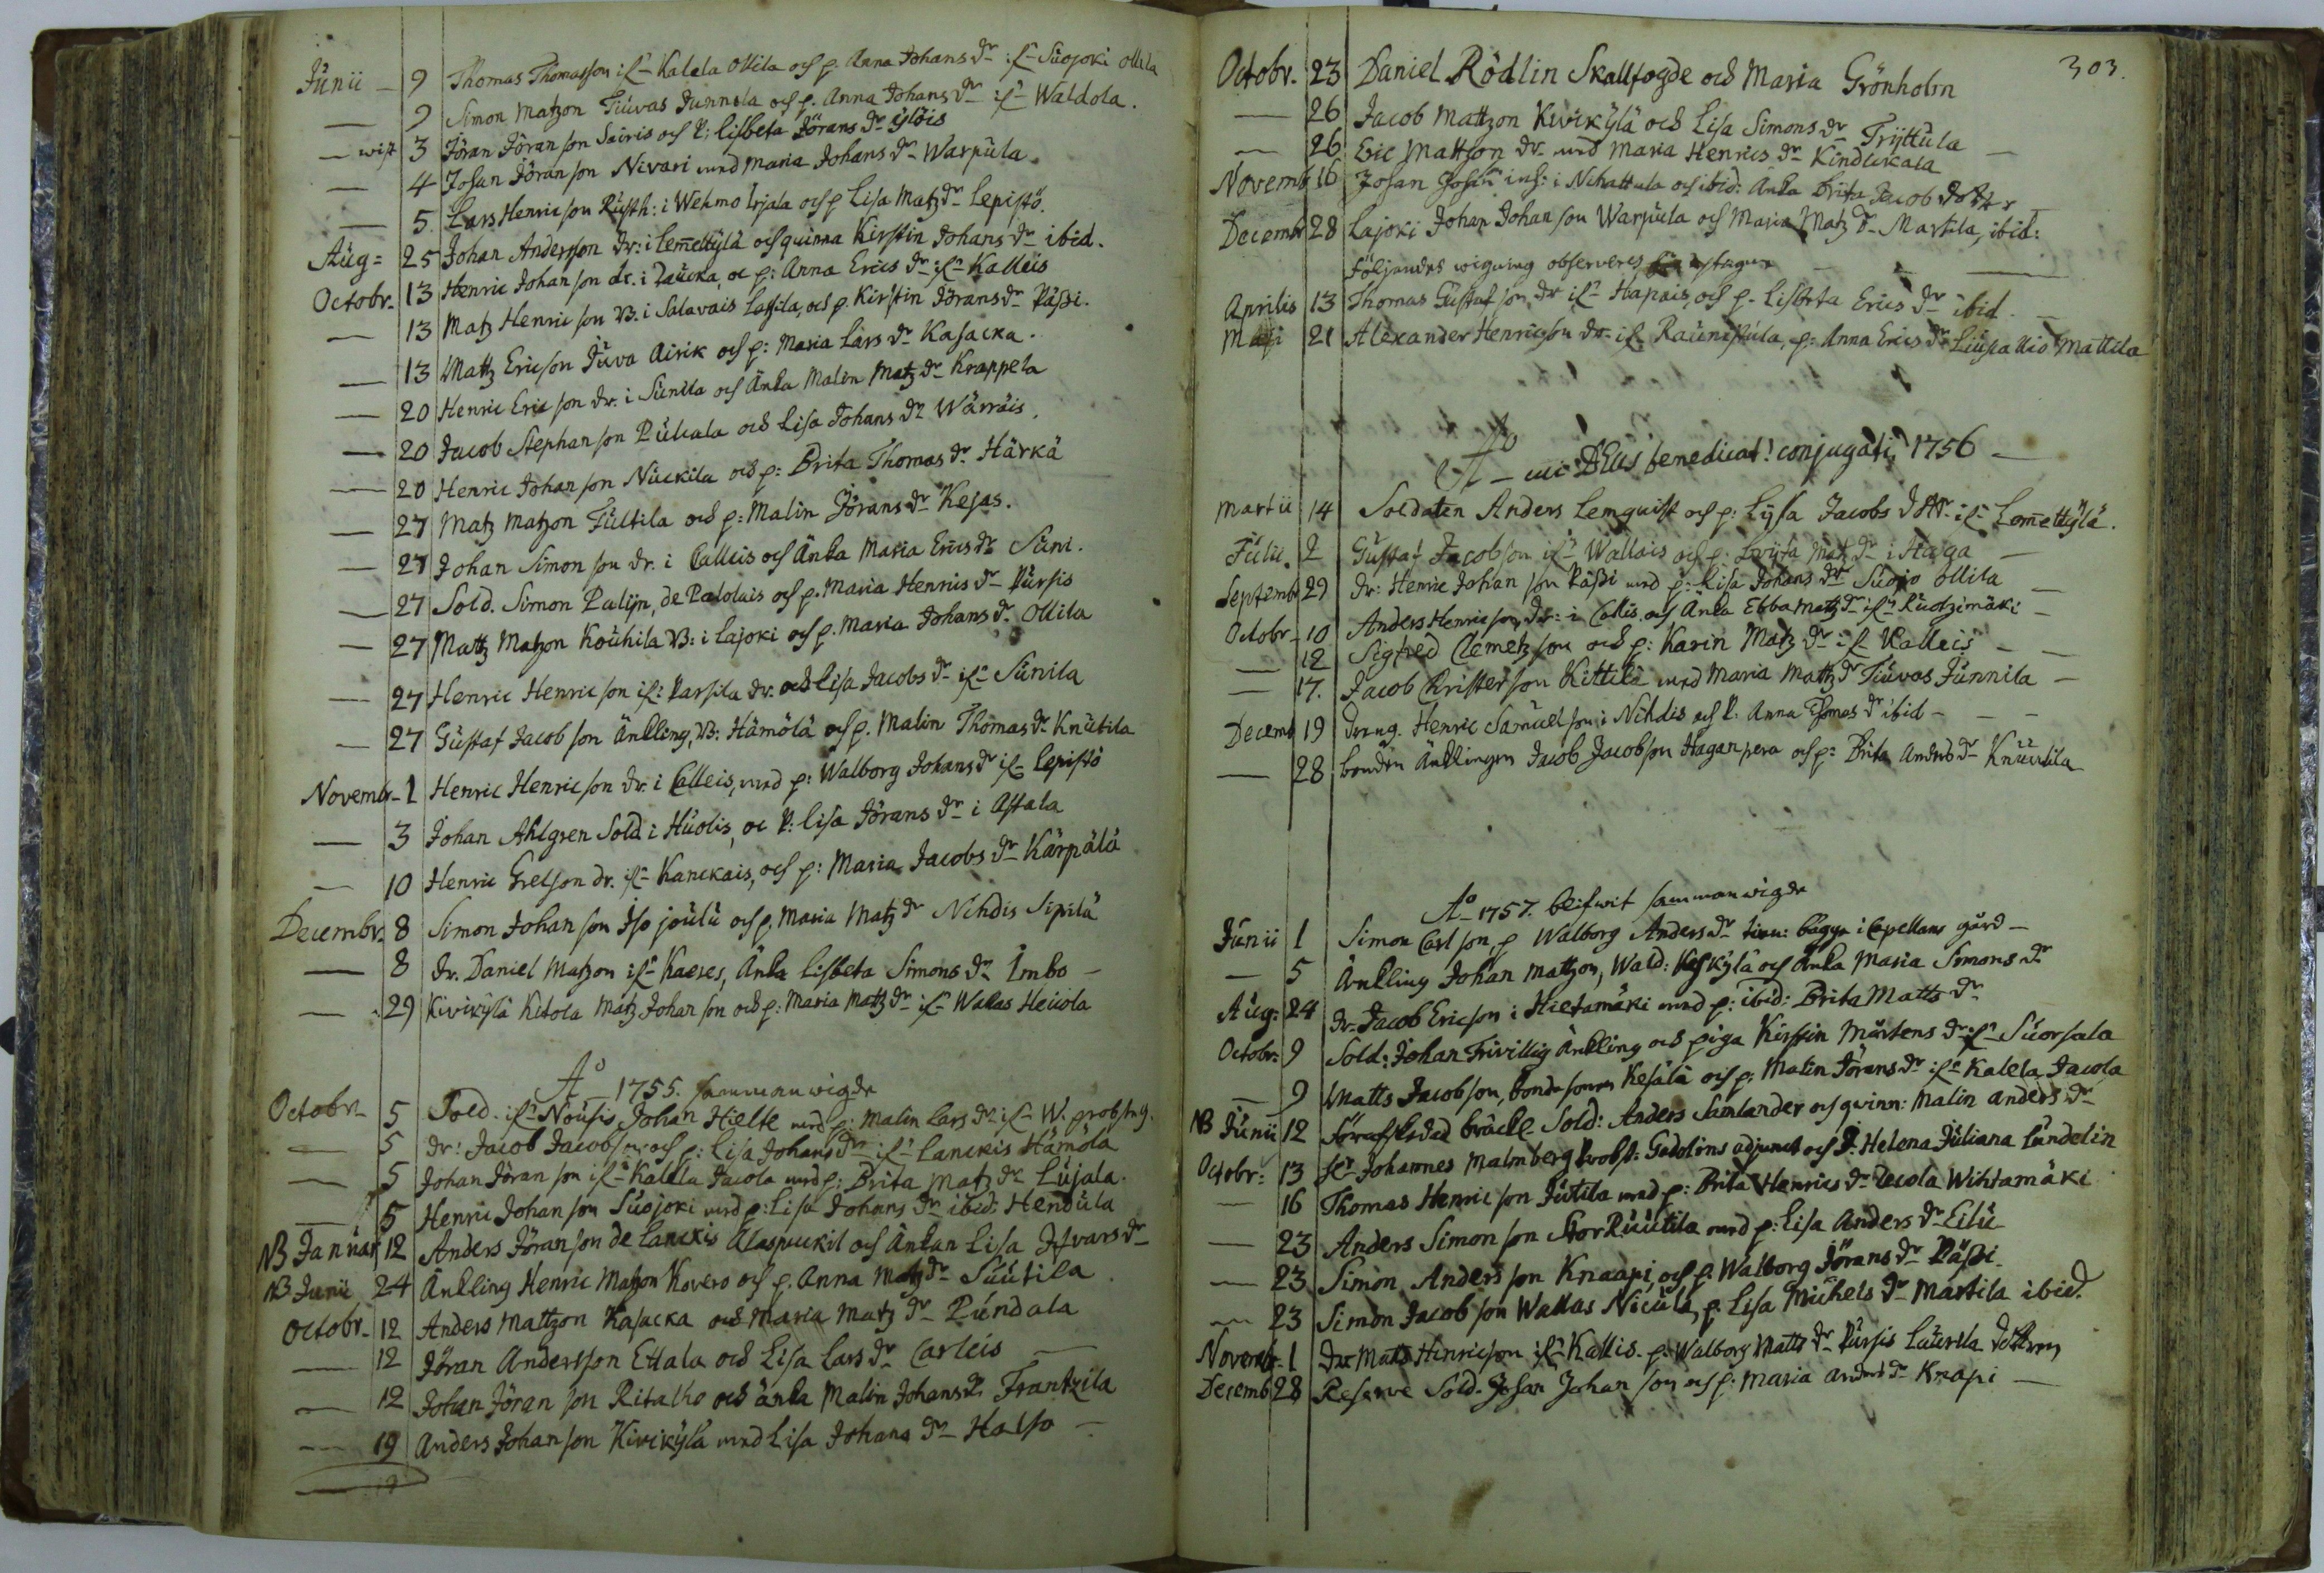 Junii — 9 Thomas Thomasson ifr Kalela Ollila och p. Anna Johans dr ifr Suojoki Ollila
— 9 Simon Matzon Tiuvas Junnila och p. Anna Johans dr ifr Waldola.
— 3 Jöran Jöranson Sairis och P: Lisbeta Jörans dr Yläis
— 4 Johan Jöranson Nivari med Maria Johans dr Warpula.
— 5 Lars Henricson Rusth: i Wehmo Irjala och p Lisa Matz dr Lepistö.
Aug= 25 Johan Andersson dr: i Lemettylä och quinna Kirstin Johans dr ibid.
Octobr. 13 Henric Johanson dr. i Laucka, oc p: Anna Erics dr ifr Kalleis
— 13 Matz Henricson B. i Salavais Lassila, och p. Kirstin Jörans dr Pässi.
— 13 Mattz Ericson Juva Airik och p: Maria Lars dr Kasacka.
— 20 Henric Ericson dr. i Sunila och Änka Malin Matz dr Krappela
— 20 Jacob Stephanson Pukala och Lisa Johans dr Wärräis.
— 20 Henric Johanson Nuckila och p: Brita Thomas dr Härkä
— 27 Matz Matzon Tultila och p: Malin Jörans dr Kejas.
— 27 Johan Simonson dr. i Calleis och Änka Maria Erics dr Suni.
— 27 Sold. Simon Palijn, de Palolais och p. Maria Henrics dr Pursis
— 27 Mattz Matzon Kouhila B: i Lajoki och p. Maria Johans dr Ollila
— 27 Henric Henricson ifr Parsila dr. och Lisa Jacobs dr ifr Sunila
— 27 Gustaf Jacobson Änkling, B: Hämölä och p. Malin Thomas dr Knutila
Novembr. 1 Henric Henricson dr. i Calleis, med p: Walborg Johans dr ifr Lepistö
— 3 Johan Ahlgren Sold. i Huolis, oc P: Lisa Jörans dr i Astala
— 10 Henric Grelson dr. ifr Kanckais, och p: Maria Jacobs dr Kärpälä
Decembr. 8 Simon Johanson Iso joulu och p. Maria Matz dr Nihdis Sipilä
— 8 dr. Daniel Matzon ifr Kaeres, Änka Lisbeta Simons dr Imbo —
— 29 Kivikylä Kitola Matz Johanson och p: Maria Mattz dr ifr Wakas Heicola
Ao 1755. sammanwigde
Octobr. 5 Sold. ifr Nousis Johan Hielte med p: Malin Lars dr ifr W.
— 5 dr: Jacob Jacobson och p: Lisa Johans dr ifr Lanckis Hämölä
— 5 Johan Jöranson ifr Kalela Jacola med p: Brita Matz dr Lujala.
— 5 Henric Johanson Suojoki med p: Lisa Johans dr ibid: Hendula
NB Januar 12 Anders Jöranson de Lanckis Alaspuckil och Änkan Lisa Isvars dr
NB Junii 24 Änkling Henric Matzon Kovero och p. Anna Matz dr Suutila
Octobr. 12 Anders Mattzon Kasacka och Maria Matz dr Pundala
— 12 Jöran Andersson Ettala och Lisa Lars dr Carleis —
— 12 Johan Jöranson Ritalho och änka Malin Johans dr Frantzila
— 19 Anders Johanson Kivikylä med Lisa Johans dr Halso —
303.
Octobr. 23 Daniel Rödlin Skallfogde och Maria Grönholm
— 26 Jacob Mattzon Kivikylä och Lisa Simons dr Trijttula —
— 26 Eric Mattson dr. med Maria Henrics dr Kindickala
Novemb 16 Johan inh: i Nihattula och ibid: Änka Brita Jacob dotter —
Decembr 28 Lajoki Johan Johanson Warpula och Maria Matz dr Martila, ibid:
Följandes wigning observeres
Aprilis 13 Thomas Gustafson dr ifr Hapais, och p. Lisbeta Erics dr ibid. —
Maji 21 Alexander Henricson dr. ifr Raunistula, p: Anna Erics dr Liupallio Mattila
Ao — cui Deus benedicat! conjugati, 1756 —
Martii 14 Soldaten Anders Lemquist och p: Lysa Jacobs dotr ifr Lomettylä.
Julii. 2 Gustaf Jacobson ifr Wallais och p: Matz dr i Haga —
Septemb 29 dr: Henric Johanson Pässi med p: Lisa Johans dr Suojo Ollila —
Octobr. 10 Anders Henricson, dr: i Callis och Änka Ebba Matz dr ifr Ruotzimäki —
— 12 Sigfred Clemetzson och p: Karin Matz dr ifr Kalleis — —
— 17. Jacob Christerson Kittilä med Maria Mattz dr Tiuvas Junnila —
Decemb 19 dreng. Henric Samuelson i Nihdis och P: Anna Thomas dr ibid — — —
— 28 bonden Änklingen Jacob Jacobson Haganpera och p: Brita Anders dr Knuutila
Ao 1757. blifwit sammanwigde
Junii 1 Simon Carlson, p Walborg Anders dr bägge i Capellans gård —
— 5 Änkling Johan Mattzon, Wald: Keskylä och Änka Maria Simons dr
Aug: 24 dr. Jacob Ericson i Hietamäki med p: ibid: Brita Matts dr
Octobr: 9 Sold: Johan Frivillig Änkling och piga Kirstin Mårtens dr ifr Suorsala
— 9 Matts Jacobson, bonde sonen Kesälä och p: Malin Jörans dr ifr Kalela, Jacola
NB Junii 12 bräckl Sold: Anders Samlander och qwinn: Malin Anders dr
Octobr: 13 Hr Johannes Malmberg Probst: Gadolins adjunct och J: Helena Juliana Lundelin
— 16 Thomas Henricson Jutila med p: Brita Henrics dr Decola Wihtamäki
— 23 Anders Simonson Stor Ruutila med p: Lisa Anders dr Eilu
— 23 Simon Anderson Knaapi, och p: Walborg Jörans dr Pässi.
— 23 Simon Jacobson Wallas Nicula, p: Lisa Michels dr Martila ibid.
Novembr. 1 dr Matts Hinricson ifr Kallis. p: Walborg Matts dr Pursis Laurila
Decemb 28 Reserve Sold. Johan Johanson och p: Maria Anders dr Knapi —